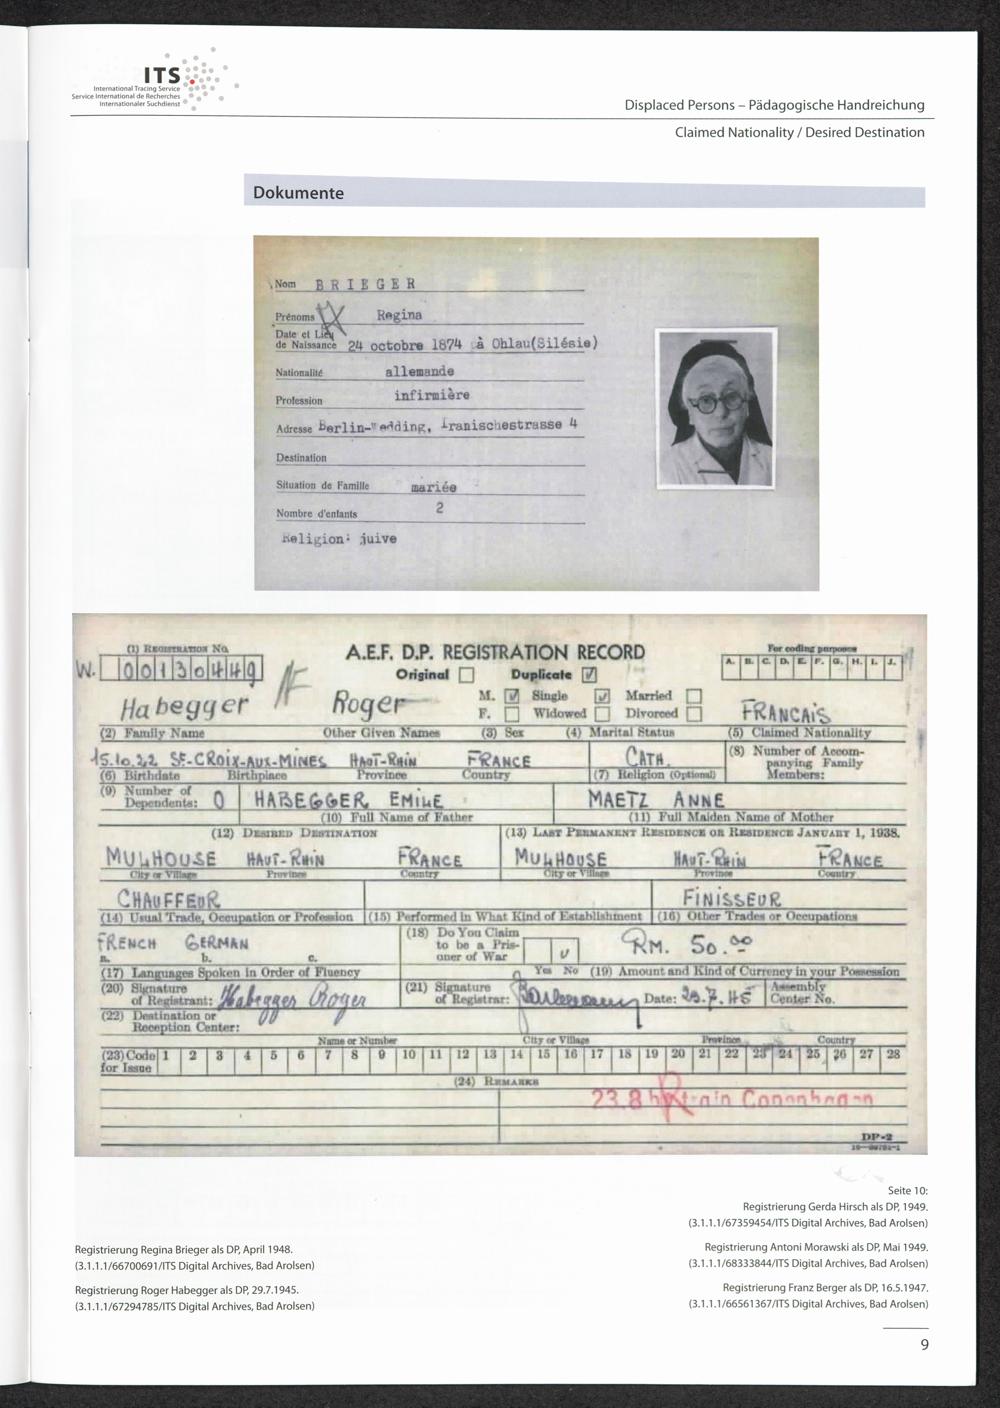 ITS
International Tracing Service
Service International de Recherches
Internationaler Suchdienst
Displaced Persons – Pädagogische Handreichung
Claimed Nationality / Desired Destination
Dokumente
Nom BRIEGER
Prénoms Regina
Date et Lieu
de Naissance 24 octobre 1874 à Ohlau(Silésie)
Nationalité allemande
Profession infirmière
Adresse Berlin-Wedding, Iranischestrasse 4
Destination
Situation de Famille mariée
Nombre d'enfants 2
Religion: juive
(1) Registration No.
A.E.F. D.P. REGISTRATION RECORD
For coding purposes
W. 00130449
Original Duplicate
A. B. C. D. E. F. G. H. I. J.
Habegger Roger
M. Single Married
F. Widowed Divorced
FRANCAIS
(2) Family Name Other Given Names (3) Sex (4) Marital Status (5) Claimed Nationality
15.10.22 St-CROIX-AUX-MINES HAUT-RHIN FRANCE CATH.
(8) Number of Accom-
panying Family
Members:
(6) Birthdate Birthplace Province Country (7) Religion (Optional)
(9) Number of
Dependents: 0 HABEGGER EMILE MAETZ ANNE
(10) Full Name of Father (11) Full Maiden Name of Mother
(12) Desired Destination (13) Last Permanent Residence or Residence January 1, 1938.
MULHOUSE HAUT-RHIN FRANCE MULHOUSE HAUT-RHIN FRANCE
City or Village Province Country City or Village Province Country
CHAUFFEUR FINISSEUR
(14) Usual Trade, Occupation or Profession (15) Performed in What Kind of Establishment (16) Other Trades or Occupations
FRENCH GERMAN
a. b. c.
(18) Do You Claim
to be a Pris-
oner of War
RM. 50.00
(17) Languages Spoken in Order of Fluency Yes No (19) Amount and Kind of Currency in your Possession
(20) Signature
of Registrant: Habegger Roger
(21) Signature
of Registrar:
Date: 29.7.45
Assembly
Center No.
(22) Destination or
Reception Center:
Name or Number City or Village Province Country
(23) Code
for Issue
1 2 3 4 5 6 7 8 9 10 11 12 13 14 15 16 17 18 19 20 21 22 23 24 25 26 27 28
(24) Remarks
23.8
DP-2
Seite 10:
Registrierung Gerda Hirsch als DP, 1949.
(3.1.1.1/67359454/ITS Digital Archives, Bad Arolsen)
Registrierung Regina Brieger als DP, April 1948.
(3.1.1.1/66700691/ITS Digital Archives, Bad Arolsen)
Registrierung Antoni Morawski als DP, Mai 1949.
(3.1.1.1/68333844/ITS Digital Archives, Bad Arolsen)
Registrierung Roger Habegger als DP, 29.7.1945.
(3.1.1.1/67294785/ITS Digital Archives, Bad Arolsen)
Registrierung Franz Berger als DP, 16.5.1947.
(3.1.1.1/66561367/ITS Digital Archives, Bad Arolsen)
9